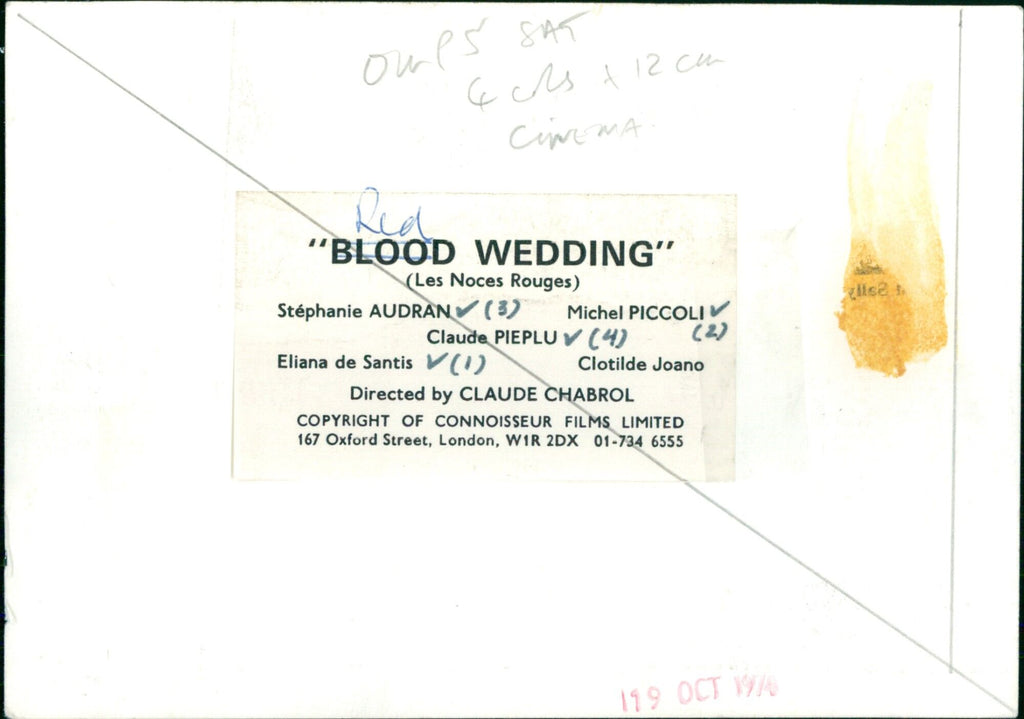 SAT
4 cols x 12 cm
CINEMA
Red
"BLOOD WEDDING"
(Les Noces Rouges)
Stéphanie AUDRAN ✓ (3) Michel PICCOLI ✓
Claude PIEPLU ✓ (4) (2)
Eliana de Santis ✓ (1) Clotilde Joano
Directed by CLAUDE CHABROL
COPYRIGHT OF CONNOISSEUR FILMS LIMITED
167 Oxford Street, London, W1R 2DX 01-734 6555
Sally
19 OCT 1976